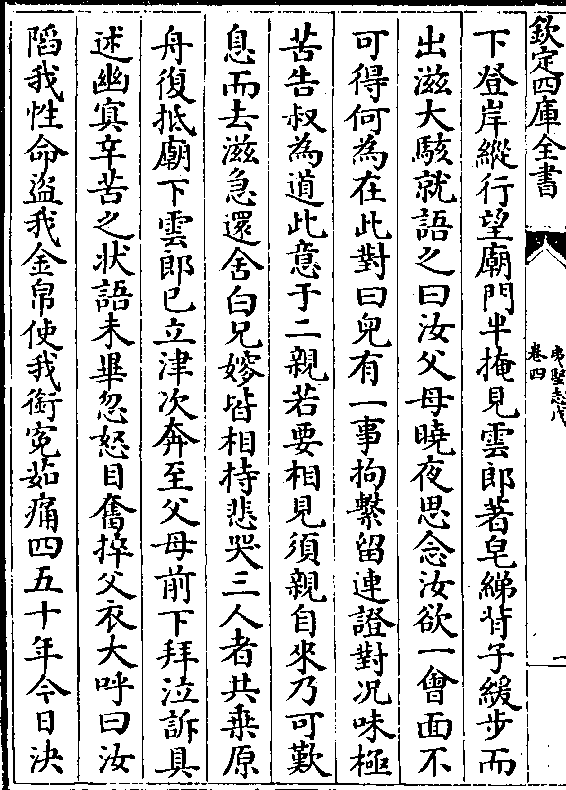 欽定四庫全書
夷堅志戊
卷四
一
下登岸縱行望廟門半掩見雲郎著皂綈背子緩步而
出滋大駭就語之曰汝父母曉夜思念汝欲一會面不
可得何為在此對曰兒有一事拘繫留連證對况味極
苦告叔為道此意于二親若要相見須親自來乃可歎
息而去滋急還舍白兄嫂皆相持悲哭三人者共乗原
舟復抵廟下雲郎已立津次奔至父母前下拜泣訴具
述幽㝠辛苦之狀語未畢忽怒目奮捽父衣大呼曰汝
䧟我性命盗我金帛使我銜寃茹痛四五十年今日決